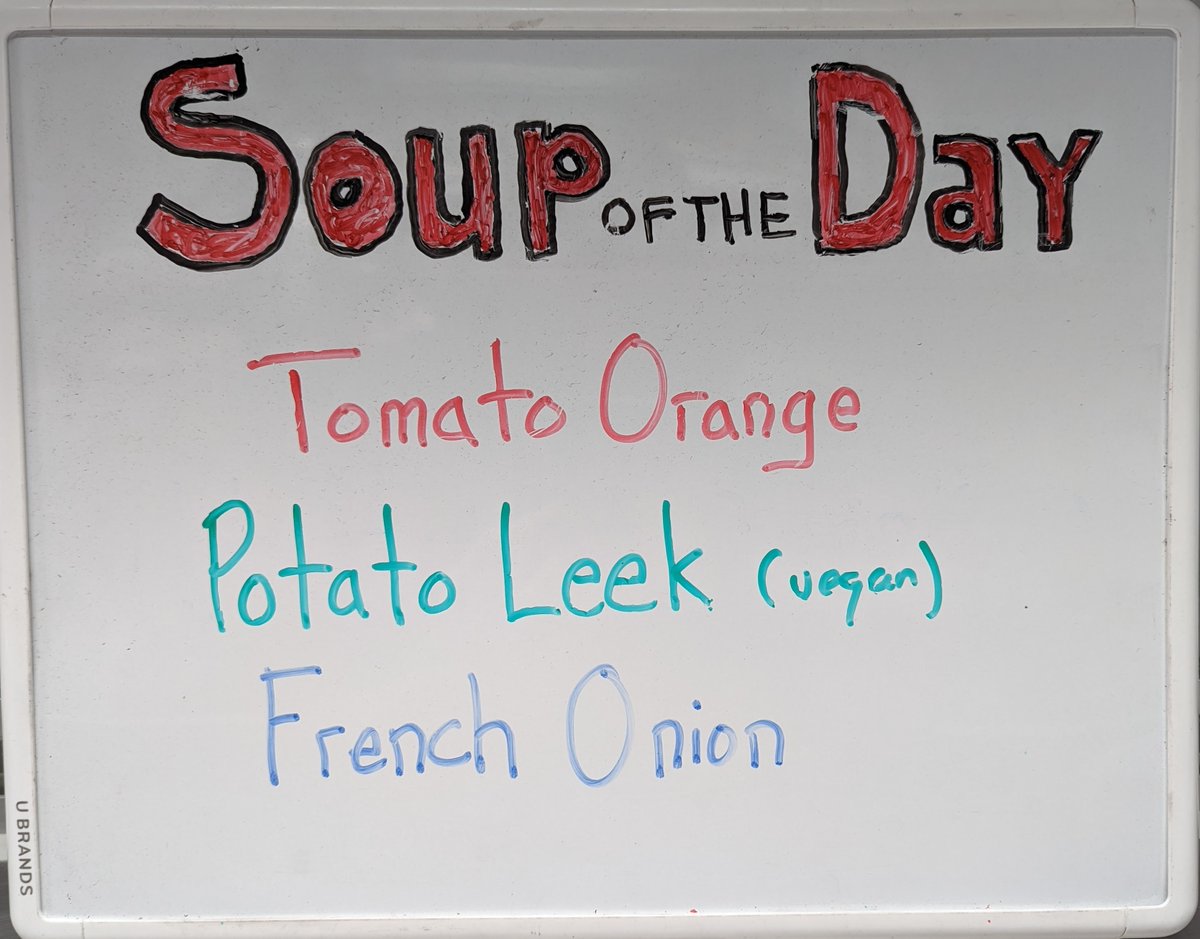 Soup OF THE Day
Tomato Orange
Potato Leek (vegan)
French Onion
U BRANDS